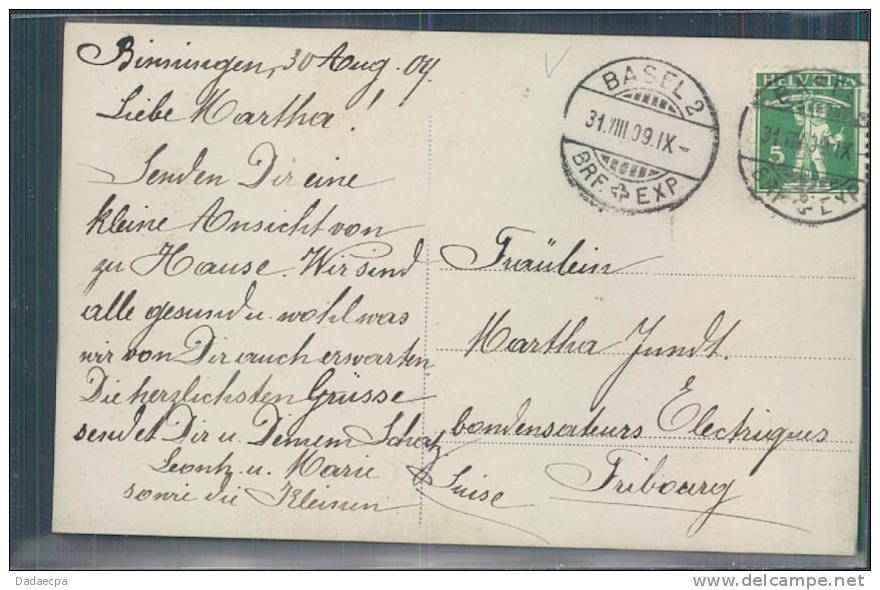 Binningen, 30 Aug. 09.
Liebe Martha!
Senden Dir eine
kleine Ansicht von
zu Hause. Wir sind
alle gesund u. wohl was
wir von Dir auch erwarten
Die herzlichsten Grüsse
sendet Dir u. Deinem Schatz
Leontz. u. Marie
sowie die Kleinen
BASEL 2
31.VIII.09.IX-
BRF. EXP.
HELVETIA
5
BASEL 2
31.VIII.09.IX
BRF. EXP.
Fräulein
Martha Jundt.
Condensateurs Electriques
Fribourg
Suise
Dadaecpa
delcampe.net